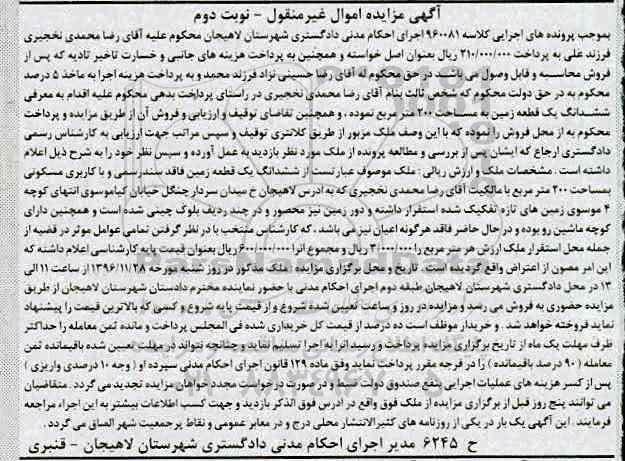 آگهی مزایده اموال غیرمنقول - نوبت دوم
بموجب پرونده های اجرایی کلاسه ۹۶۰۰۸۱ اجرای احکام مدنی دادگستری شهرستان لاهیجان محکوم علیه آقای رضا محمدی نخجیری
فرزند علی به پرداخت ۲۱۰/۰۰۰/۰۰۰ ریال بعنوان اصل خواسته و همچنین به پرداخت هزینه های جانبی و خسارت تاخیر تادیه که پس از
فروش محاسبه و قابل وصول می باشد در حق محکوم له آقای رضا حسینی نژاد فرزند محمد و به پرداخت هزینه اجرا به ماخذ ۵ درصد
محکوم به در حق دولت محکوم که شخص ثالث بنام آقای رضا محمدی نخجیری در راستای پرداخت بدهی محکوم علیه اقدام به معرفی
ششدانگ یک قطعه زمین به مساحت ۲۰۰ متر مربع نموده ، و همچنین تقاضای توقیف و ارزیابی و فروش آن از طریق مزایده و پرداخت
محکوم به از محل فروش را نموده که با این وصف ملک مزبور از طریق کلانتری توقیف و سپس مراتب جهت ارزیابی به کارشناس رسمی
دادگستری ارجاع که ایشان پس از بررسی و مطالعه پرونده از ملک مورد نظر بازدید به عمل آورده و سپس نظر خود را به شرح ذیل اعلام
داشته است . مشخصات ملک و ارزش ریالی : ملک موصوف عبارتست از ششدانگ یک قطعه زمین فاقد سندرسمی و با کاربری مسکونی
بمساحت ۲۰۰ متر مربع با مالکیت آقای رضا محمدی نخجیری که به ادرس لاهیجان خ میدان سردار جنگل خیابان کیاموسوی انتهای کوچه
۴ موسوی زمین های تازه تفکیک شده استقرار داشته و دور زمین نیز محصور و در چند ردیف بلوک چینی شده است و همچنین دارای
کوچه ماشین رو بوده و در حال حاضر فاقد هرگونه اعیان نیز می باشد ، که کارشناس منتخب با در نظر گرفتن تمامی عوامل موثر در قضیه از
جمله محل استقرار ملک ارزش هر متر مربع را ۳/۰۰۰/۰۰۰ ریال و مجموع انرا ۶۰۰/۰۰۰/۰۰۰ ریال بعنوان قیمت پایه کارشناسی اعلام داشته که
این امر مصون از اعتراض واقع گردیده است . تاریخ و محل برگزاری مزایده : ملک مذکور در روز شنبه مورخه ۱۳۹۶/۱۱/۲۸ از ساعت ۱۱ الی
۱۳ در محل دادگستری شهرستان لاهیجان طبقه دوم اجرای احکام مدنی با حضور نماینده محترم دادستان شهرستان لاهیجان از طریق
مزایده حضوری به فروش می رسد و مزایده در روز و ساعت تعیین شده شروع و از قیمت پایه شروع و کسی که بالاترین قیمت را پیشنهاد
نماید فروخته خواهد شد . و خریدار موظف است ده درصد از قیمت کل خریداری شده فی المجلس پرداخت و مانده ثمن معامله را حداکثر
ظرف مهلت یک ماه از تاریخ برگزاری مزایده پرداخت و رسید انرا به اجرا تسلیم نماید و چنانچه نتواند در مهلت تعیین شده باقیمانده ثمن
معامله ( ۹۰ درصد باقیمانده ) را در فرجه مقرر پرداخت نماید وفق ماده ۱۲۹ قانون اجرای احکام مدنی سپرده او ( وجه ۱۰ درصدی واریزی )
پس از کسر هزینه های عملیات اجرایی بنفع صندوق دولت ضبط و در صورت درخواست مجدد خواهان مزایده تجدید می گردد . متقاضیان
می توانند پنج روز قبل از برگزاری مزایده از ملک فوق واقع در ادرس فوق الذکر بازدید و جهت کسب اطلاعات بیشتر به این اجراء مراجعه
فرمایند . این آگهی یک بار در یکی از روزنامه های کثیرالانتشار محلی درج و در معابر عمومی و نقاط پرجمعیت شهر الصاق می گردد .
ح ۶۲۴۵ مدیر اجرای احکام مدنی دادگستری شهرستان لاهیجان - قنبری